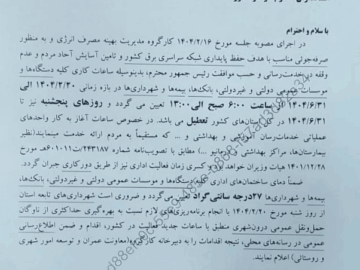 با سلام و احترام
در اجرای مصوبه جلسه مورخ ۱۴۰۴/۲/۱۶ کارگروه مدیریت بهینه مصرف انرژی و به منظور
صرفه‌جوئی مناسب با هدف حفظ پایداری شبکه سراسری برق کشور و تامین آسایش آحاد مردم و عدم
وقفه در خدمت‌رسانی و حسب موافقت رئیس جمهور محترم، بدینوسیله ساعات کاری کلیه دستگاه‌ها و
موسسات عمومی دولتی و غیردولتی، بانک‌ها، بیمه‌ها و شهرداری‌ها در بازه زمانی ۱۴۰۴/۲/۲۰
۱۴۰۴/۶/۳۱ ساعت ۶:۰۰ صبح الی ۱۳:۰۰ تعیین می گردد و روزهای پنجشنبه نیز تا
۱۴۰۴/۶/۳۱ در کل استان‌های کشور تعطیل می باشد. در خصوص ساعات آغاز به کار واحدهای
عملیاتی خدمات‌رسان و بهداشتی و ... که مستقیماً به مردم ارائه خدمت مینمایند/نظیر
بیمارستان‌ها، مراکز بهداشتی ...) مطابق با تصویب‌نامه شماره مورخ
۱۴۰۱/۱۲/۲۸ هیات وزیران خواهد بود و کسری زمان فعالیت اداری نیز از طریق دورکاری جبران گردد.
ضمناً دمای ساختمان‌های اداری دستگاه‌ها و موسسات عمومی دولتی و غیردولتی، بانک‌ها،
بیمه‌ها و شهرداری‌ها ۲۷درجه سانتی‌گراد تعیین می‌گردد و ضروری است شهرداری‌های تابعه استان
از روز شنبه مورخ ۱۴۰۴/۲/۲۰ با انجام برنامه‌ریزی‌های لازم نسبت به بهره‌گیری حداکثری از ناوگان
حمل‌ونقل عمومی درون‌شهری منطبق با ساعات جدید فعالیت در کشور، اقدام و ضمن اطلاع‌رسانی
عمومی در رسانه‌های محلی، نتیجه اقدامات را به دبیرخانه کارگروه(معاونت عمران و توسعه امور شهری
و روستائی) اعلام نمایند.